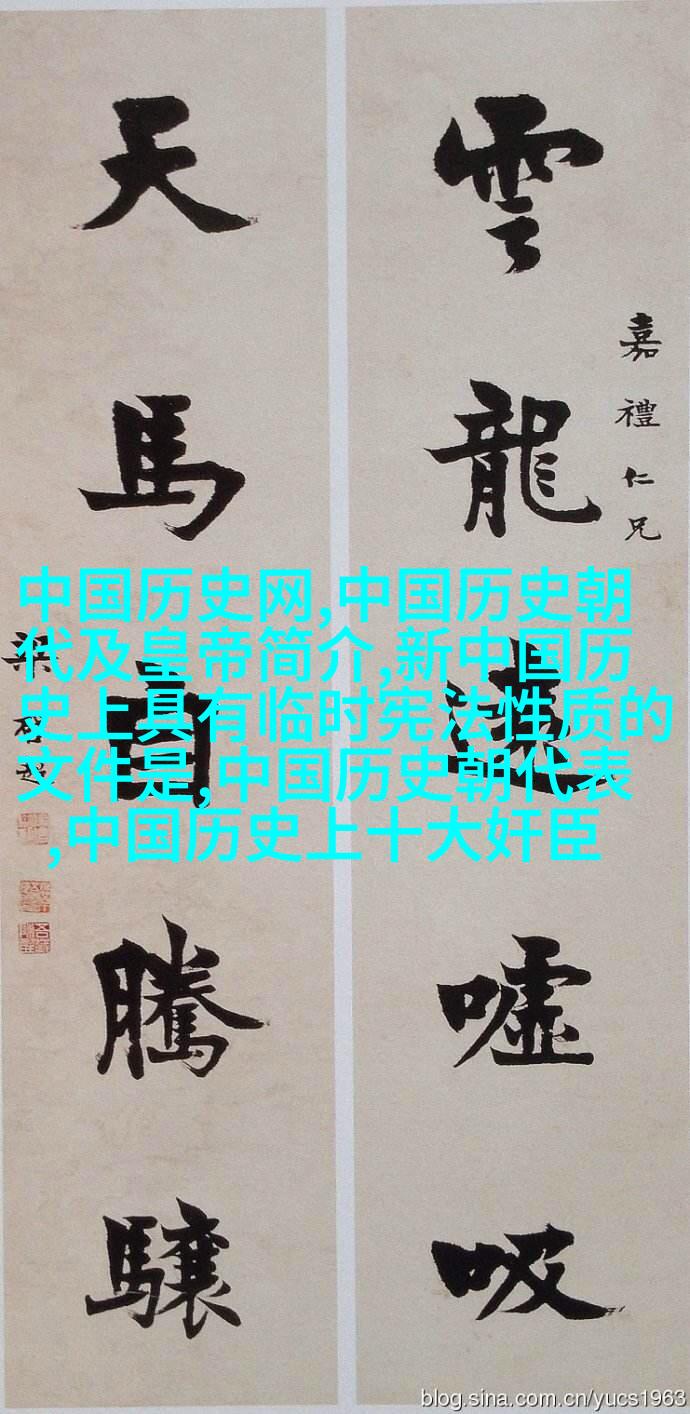 雲龍遠噓吸
嘉禮仁兄
天馬自騰驤
梁啟超
中国历史网,中国历史朝
代及皇帝简介,新中国历
史上具有临时宪法性质的
文件是,中国历史朝代表
,中国历史上十大奸臣
blog.sina.com.cn/yucs1963